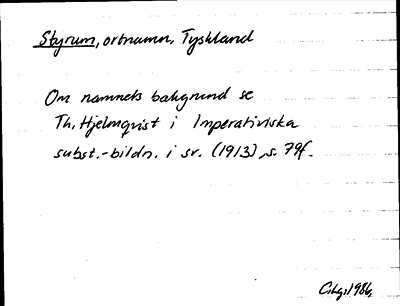 Styrum, ortnamn, Tyskland
Om namnets bakgrund se
Th. Hjelmqvist i Imperativiska
subst.-bildn. i sv. (1913), s. 79f.
1986